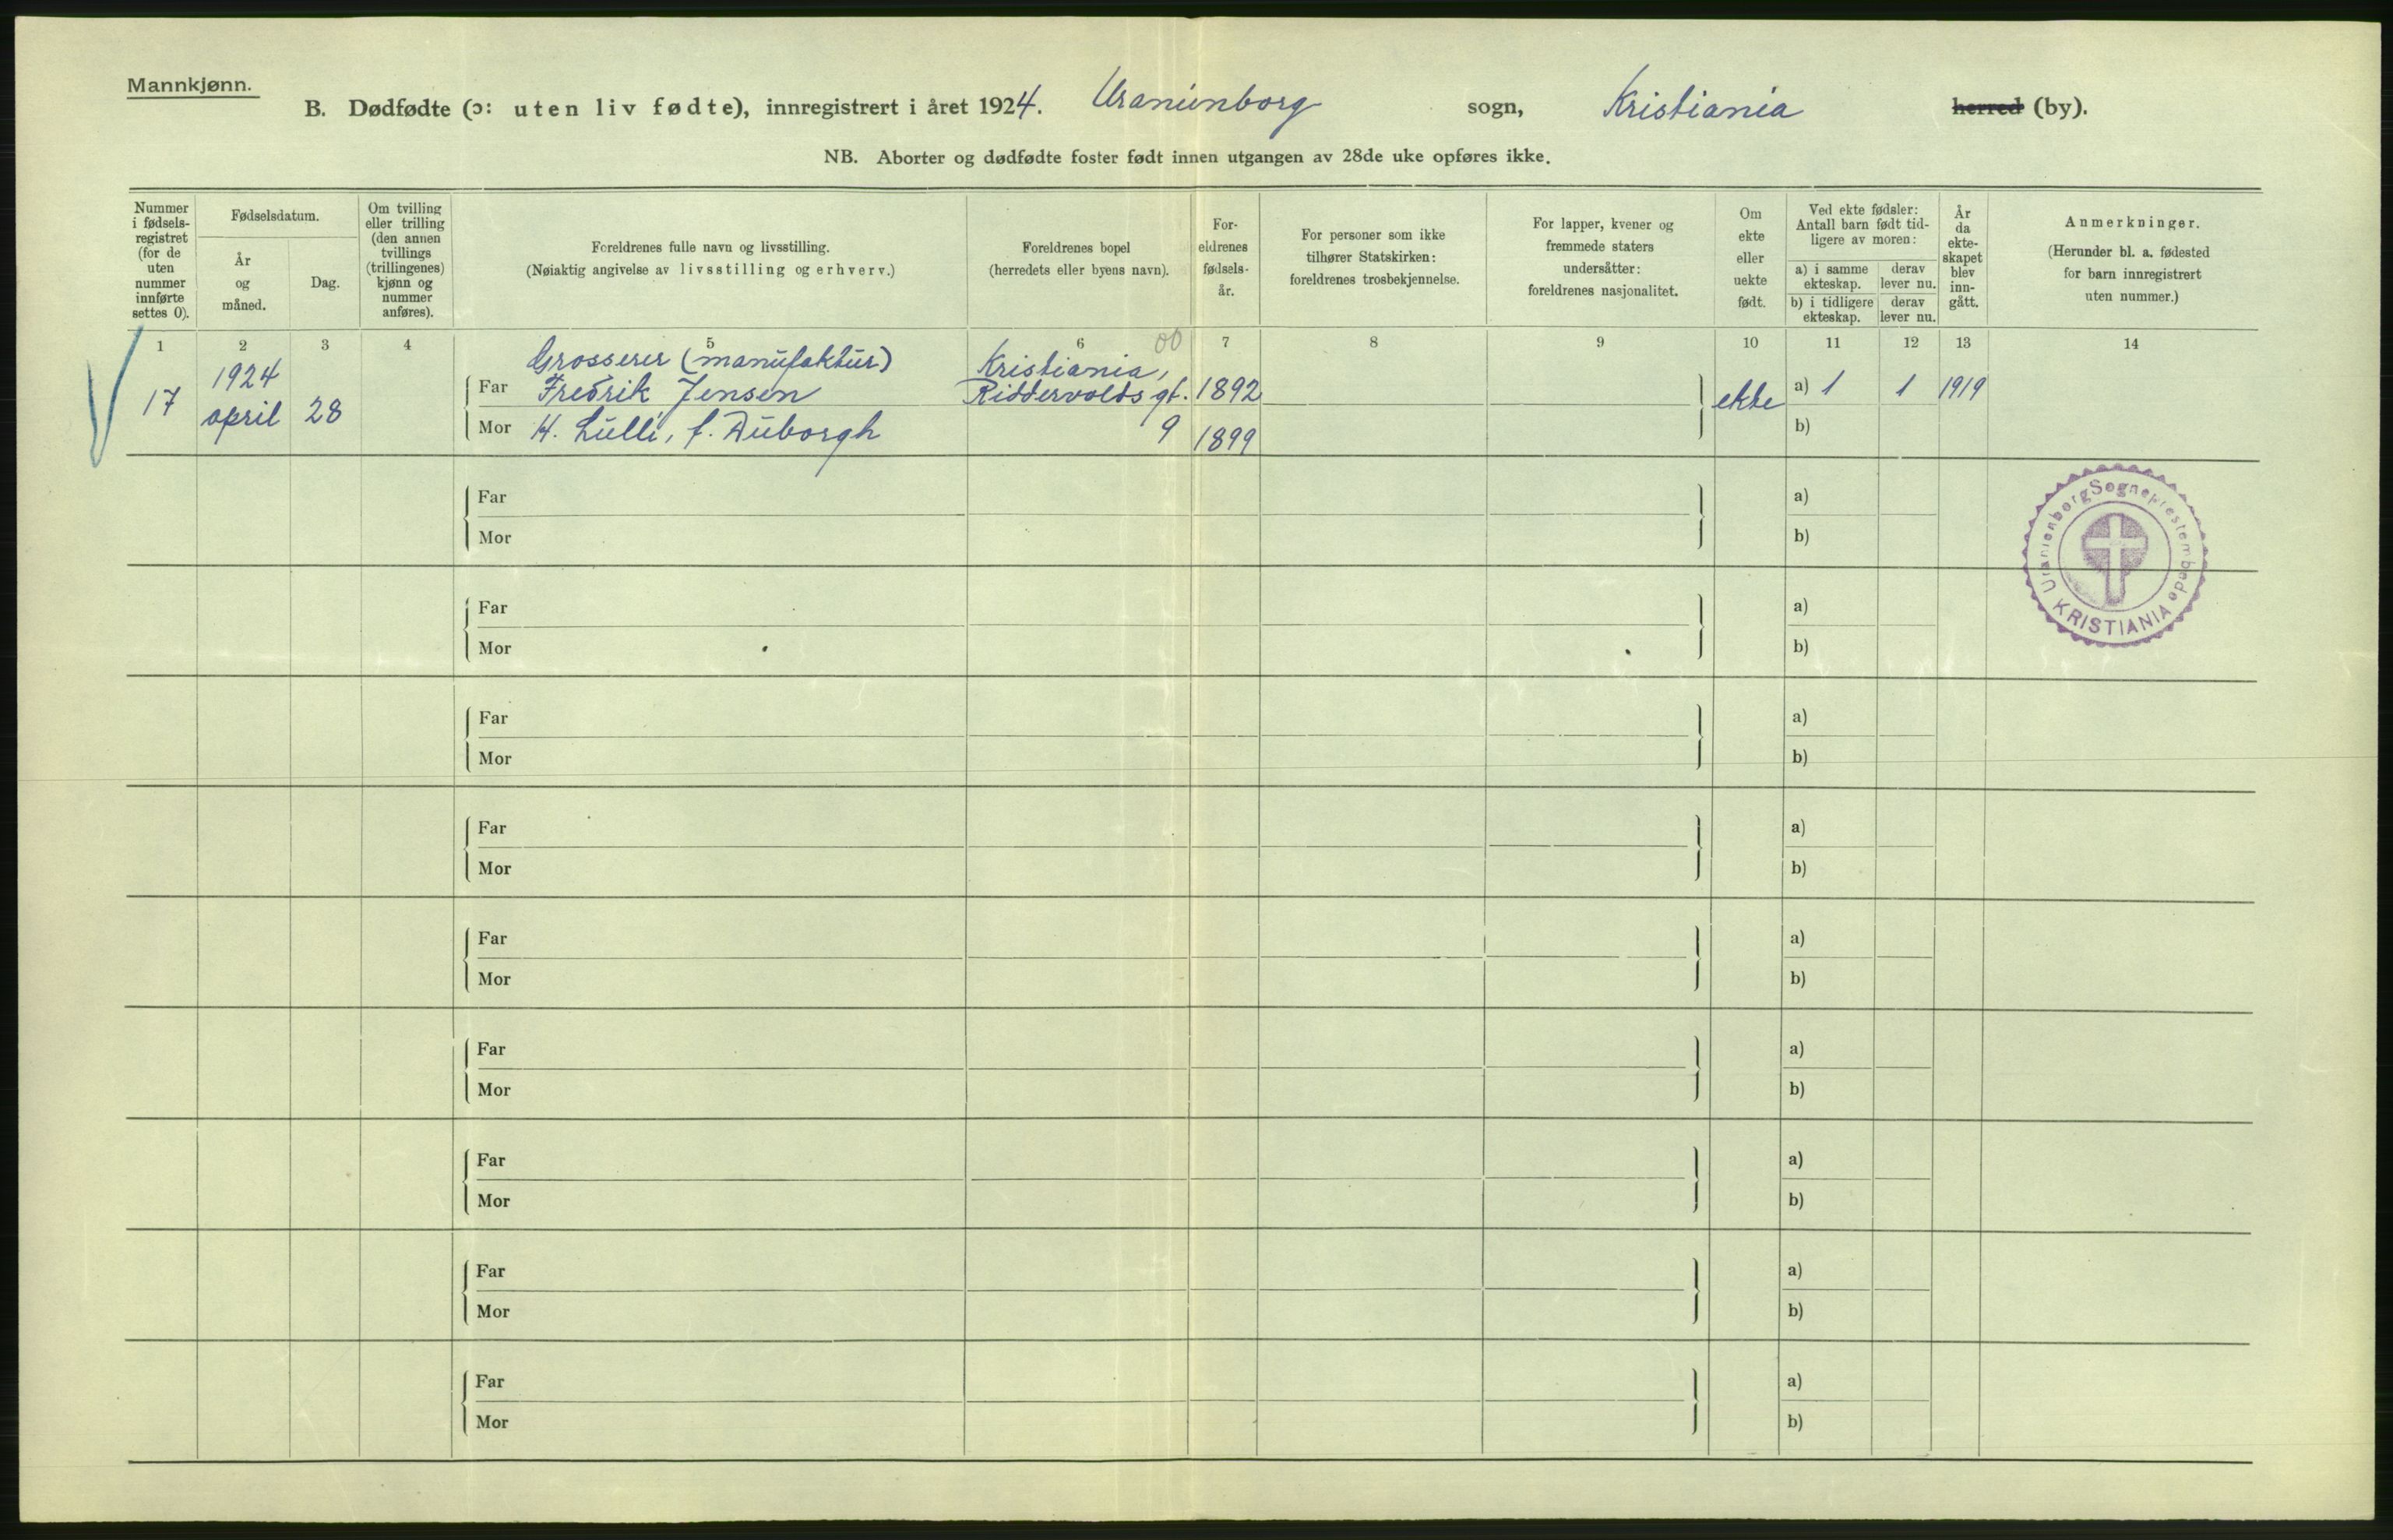 Mannkjønn.
B. Dødfødte (ɔ: uten liv fødte), innregistrert i året 1924. Uranienborg sogn, Kristiania herred (by).
NB. Aborter og dødfødte foster født innen utgangen av 28de uke opføres ikke.
Nummer i fødsels-registret (for de uten nummer innførte settes 0).
Fødselsdatum.
År og måned.
Dag.
Om tvilling eller trilling (den annen tvillings (trillingenes) kjønn og nummer anføres).
Foreldrenes fulle navn og livsstilling.
(Nøiaktig angivelse av livsstilling og erhverv.)
Foreldrenes bopel
(herredets eller byens navn).
For-eldrenes fødsels-år.
For personer som ikke tilhører Statskirken: foreldrenes trosbekjennelse.
For lapper, kvener og fremmede staters undersåtter: foreldrenes nasjonalitet.
Om ekte eller uekte født.
Ved ekte fødsler: Antall barn født tid-ligere av moren:
a) i samme ekteskap.
derav lever nu.
b) i tidligere ekteskap.
derav lever nu.
År da ekte-skapet blev inn-gått.
Anmerkninger.
(Herunder bl. a. fødested for barn innregistrert uten nummer.)
1 2 3 4 5 6 7 8 9 10 11 12 13 14
00
17 1924 april 28
Grosserer (manufaktur)
Far Fredrik Jensen
Mor H. Lulli, f. Auborgh
Kristiania,
Riddervolds gt.
9
1892
1899
ekte
a) 1 1 1919
b)
Far a)
Mor b)
Far a)
Mor b)
Far a)
Mor b)
Far a)
Mor b)
Far a)
Mor b)
Far a)
Mor b)
Far a)
Mor b)
Far a)
Mor b)
Far a)
Mor b)
Uranienborg Sogneprestembede
KRISTIANIA